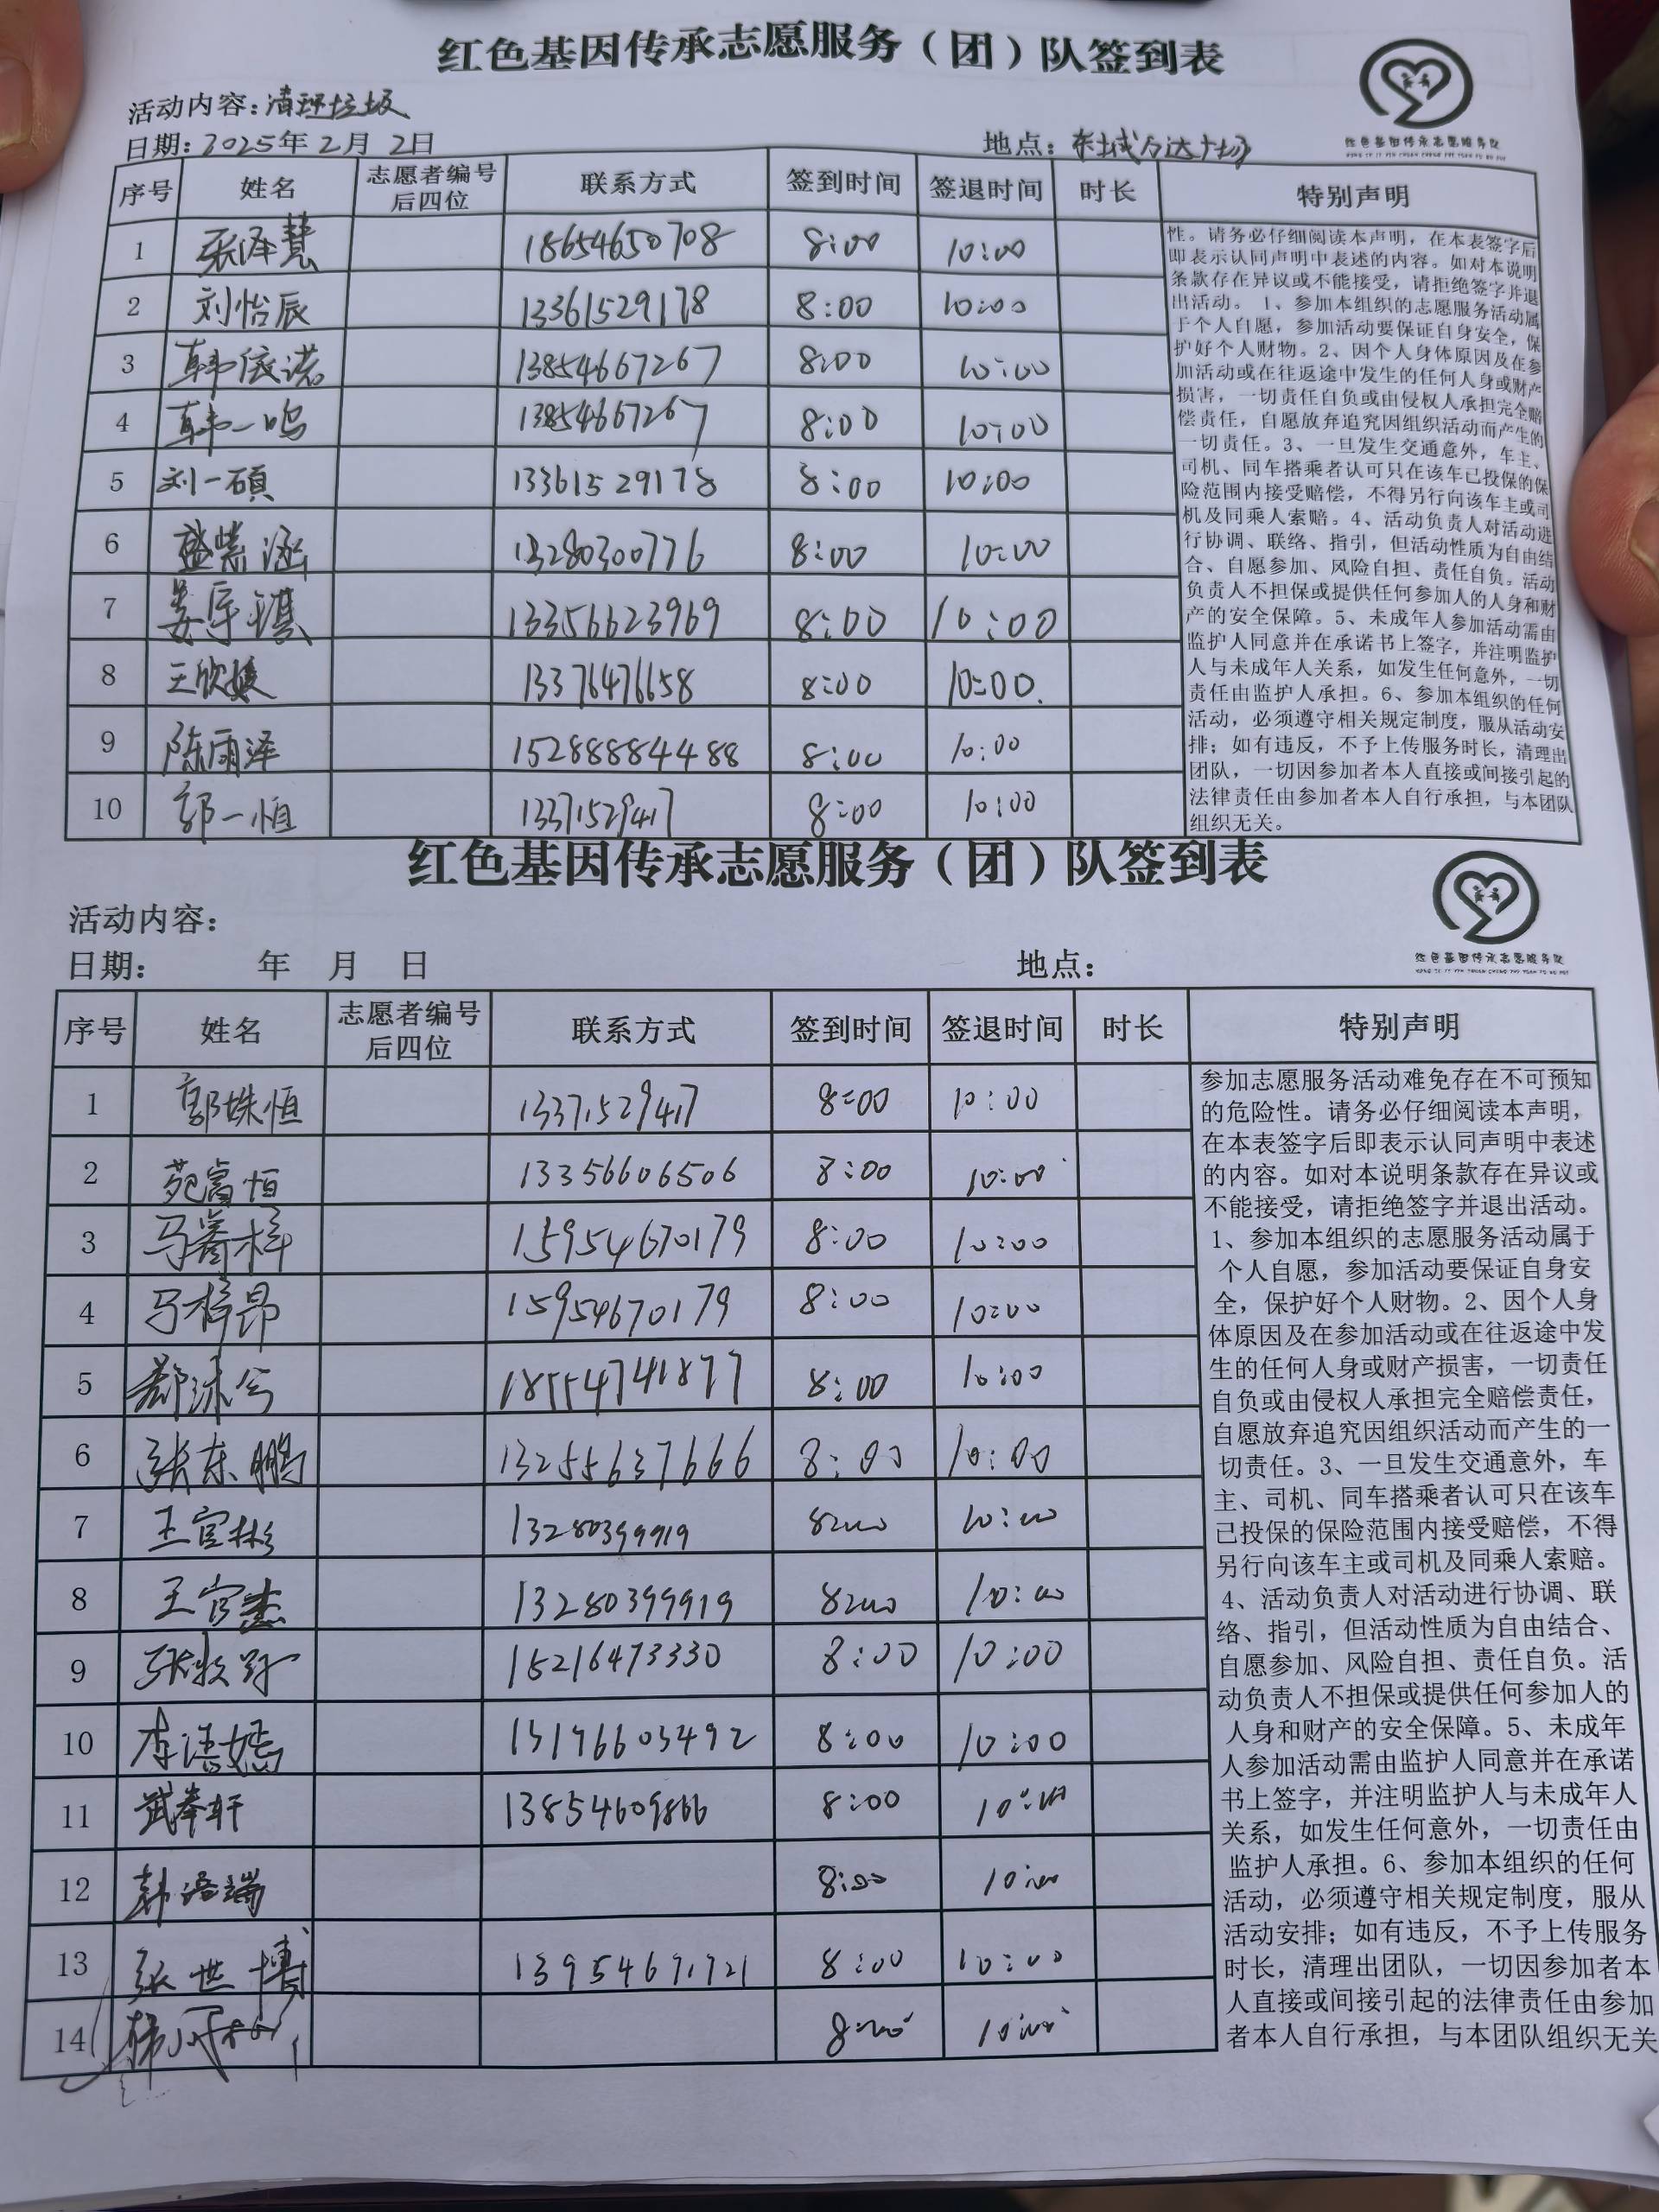 红色基因传承志愿服务（团）队签到表
活动内容：清理垃圾
日期：2025年2月2日 地点：东城万达广场
红色基因传承志愿服务队
序号 姓名 志愿者编号后四位 联系方式 签到时间 签退时间 时长 特别声明
1 张泽慧 18654650708 8:00 10:00
2 刘怡辰 13361529178 8:00 10:00
3 韩依诺 13854667267 8:00 10:00
4 韩一鸣 13854667267 8:00 10:00
5 刘一硕 13361529178 8:00 10:00
6 盛紫涵 13280300776 8:00 10:00
7 姜宇琪 13356623969 8:00 10:00
8 王欣媛 13376476658 8:00 10:00
9 陈雨泽 15288884488 8:00 10:00
10 郭一恒 13371529417 8:00 10:00
性。请务必仔细阅读本声明，在本表签字后
即表示认同声明中表述的内容。如对本说明
条款存在异议或不能接受，请拒绝签字并退
出活动。 1、参加本组织的志愿服务活动属
于个人自愿，参加活动要保证自身安全，保
护好个人财物。2、因个人身体原因及在参
加活动或在往返途中发生的任何人身或财产
损害，一切责任自负或由侵权人承担完全赔
偿责任，自愿放弃追究因组织活动而产生的
一切责任。3、一旦发生交通意外，车主、
司机、同车搭乘者认可只在该车已投保的保
险范围内接受赔偿，不得另行向该车主或司
机及同乘人索赔。4、活动负责人对活动进
行协调、联络、指引，但活动性质为自由结
合、自愿参加、风险自担、责任自负。活动
负责人不担保或提供任何参加人的人身和财
产的安全保障。5、未成年人参加活动需由
监护人同意并在承诺书上签字，并注明监护
人与未成年人关系，如发生任何意外，一切
责任由监护人承担。6、参加本组织的任何
活动，必须遵守相关规定制度，服从活动安
排；如有违反，不予上传服务时长，清理出
团队，一切因参加者本人直接或间接引起的
法律责任由参加者本人自行承担，与本团队
组织无关。
红色基因传承志愿服务（团）队签到表
活动内容：
日期： 年 月 日 地点：
红色基因传承志愿服务队
序号 姓名 志愿者编号后四位 联系方式 签到时间 签退时间 时长 特别声明
1 郭姝恒 13371529417 8:00 10:00
2 苑富恒 13356606506 8:00 10:00
3 马蓦梓 15954670179 8:00 10:00
4 马梓昂 15954670179 8:00 10:00
5 18554741877 8:00 10:00
6 张东鹏 13255637666 8:00 10:00
7 王官彬 13280399919 8:00 10:00
8 王官杰 13280399919 8:00 10:00
9 15216473330 8:00 10:00
10 李语嫣 13176603492 8:00 10:00
11 武奉轩 13854609866 8:00 10:00
12 韩语端 8:00 10:00
13 张世博 13954671721 8:00 10:00
14 8:00 10:00
参加志愿服务活动难免存在不可预知
的危险性。请务必仔细阅读本声明，
在本表签字后即表示认同声明中表述
的内容。如对本说明条款存在异议或
不能接受，请拒绝签字并退出活动。
1、参加本组织的志愿服务活动属于
个人自愿，参加活动要保证自身安
全，保护好个人财物。2、因个人身
体原因及在参加活动或在往返途中发
生的任何人身或财产损害，一切责任
自负或由侵权人承担完全赔偿责任，
自愿放弃追究因组织活动而产生的一
切责任。3、一旦发生交通意外，车
主、司机、同车搭乘者认可只在该车
已投保的保险范围内接受赔偿，不得
另行向该车主或司机及同乘人索赔。
4、活动负责人对活动进行协调、联
络、指引，但活动性质为自由结合、
自愿参加、风险自担、责任自负。活
动负责人不担保或提供任何参加人的
人身和财产的安全保障。5、未成年
人参加活动需由监护人同意并在承诺
书上签字，并注明监护人与未成年人
关系，如发生任何意外，一切责任由
监护人承担。6、参加本组织的任何
活动，必须遵守相关规定制度，服从
活动安排；如有违反，不予上传服务
时长，清理出团队，一切因参加者本
人直接或间接引起的法律责任由参加
者本人自行承担，与本团队组织无关